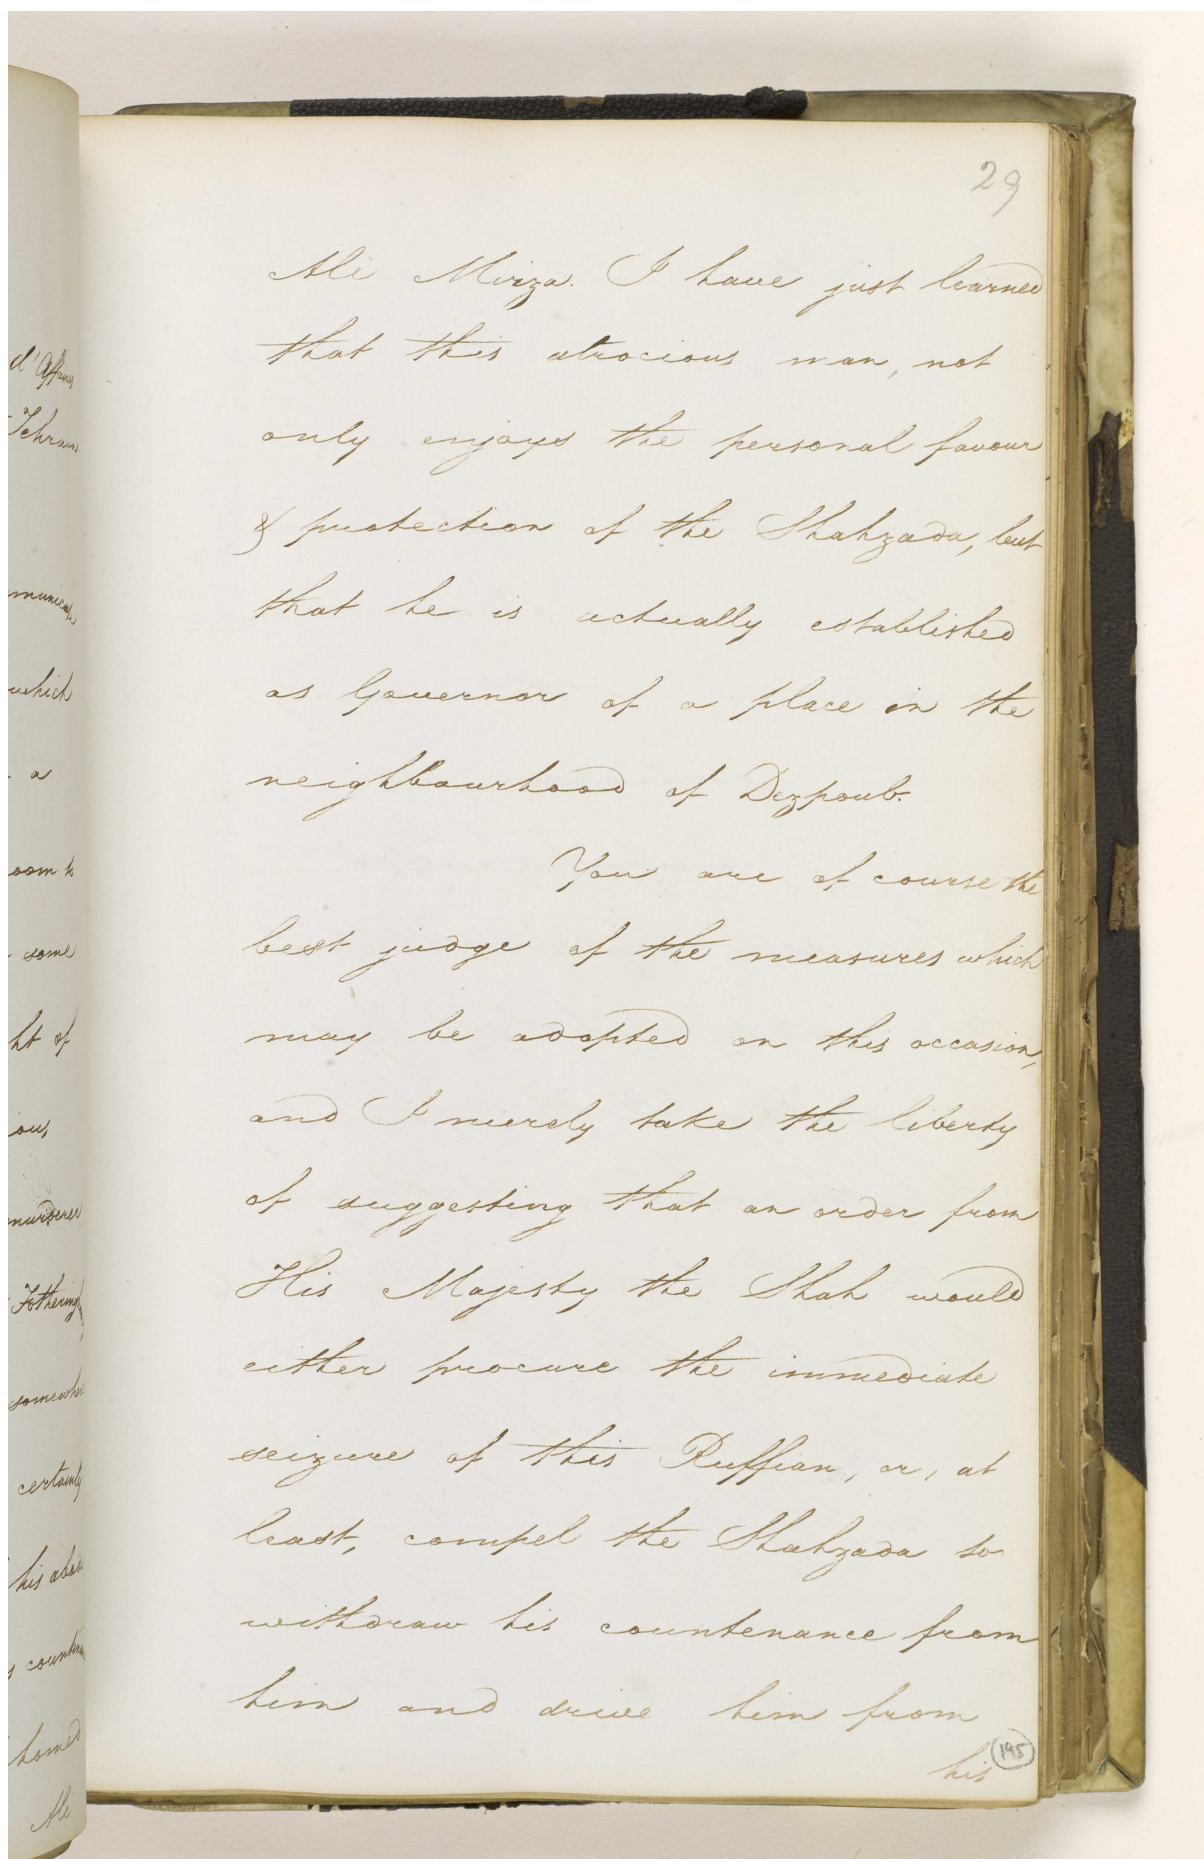 d' Affaires
Tehraun
which
a
some
ht of
murderer
certainly
Ali
29
Ali Mirza. I have just learned
that this atrocious man, not
only enjoys the personal favour
& protection of the Shahzada, but
that he is actually established
as Governor of a place in the
neighbourhood of Dezpoub.
You are of course the
best judge of the measures which
may be adopted on this occasion,
and I merely take the liberty
of suggesting that an order from
His Majesty the Shah would
either procure the immediate
seizure of this Ruffian, or, at
least, compel the Shahzada to
withdraw his countenance from
him and drive him from
his
195